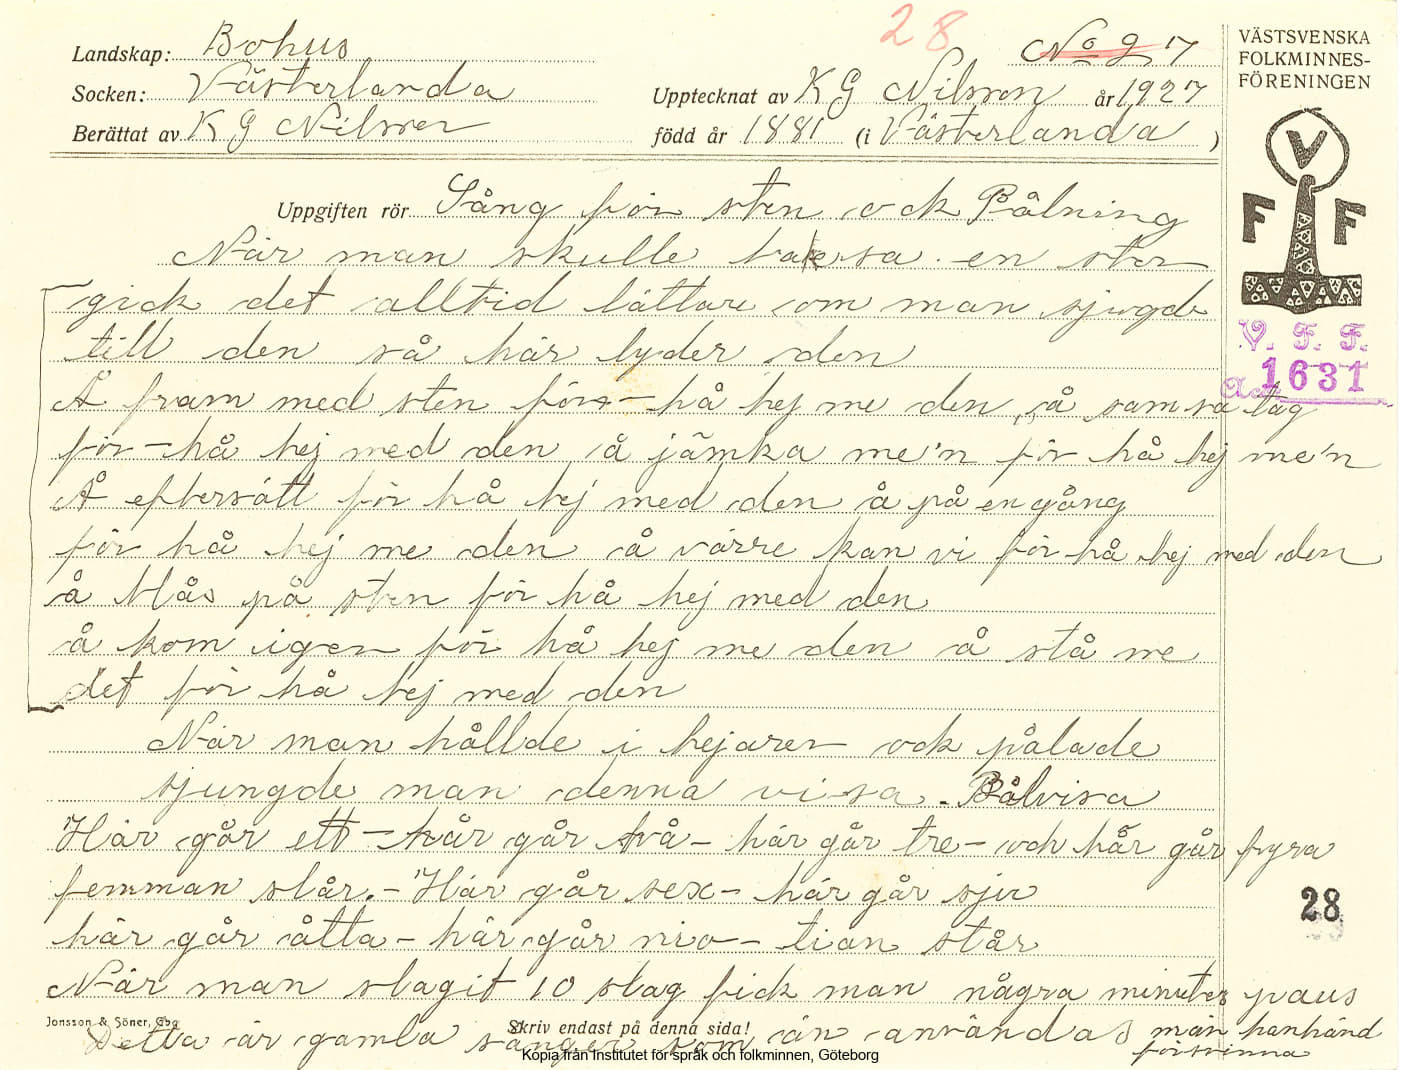 28
Landskap: Bohus
No 27
Socken: Västerlanda
Upptecknat av K G Nilsson år 1927
Berättat av K G Nilsson
född år 1881 (i Västerlanda )
VÄSTSVENSKA
FOLKMINNES-
FÖRENINGEN
V
F F
Uppgiften rör Sång för sten ock Pålning
När man skulle baksa en sten
gick det alltid lättare om man sjugde
till den så här lyder den
V. F. F.
Acc 1631
Å fram med sten för hå hej me den å samsa tag
för - hå hej med den å jämka me'n för hå hej me'n
Å eftersätt för hå hej med den å på en gång
för hå hej me den å värre kan vi för hå hej med den
å blås på sten för hå hej med den
å kom igen för hå hej me den å stå me
det för hå hej med den
När man hållde i hejaren ock pålade
sjungde man denna visa. Pålvisa
Här går ett - här går två - här går tre - och här går fyra
femman slår. - Här går sex - här går sju
här går åtta - här går nio - tian står
28
När man slagit 10 slag fick man några minuter paus
Jonsson & Söner, Gbg
Skriv endast på denna sida!
Detta är gamla sånger som än användas män hanhänd
försvinna
Kopia från Institutet för språk och folkminnen, Göteborg